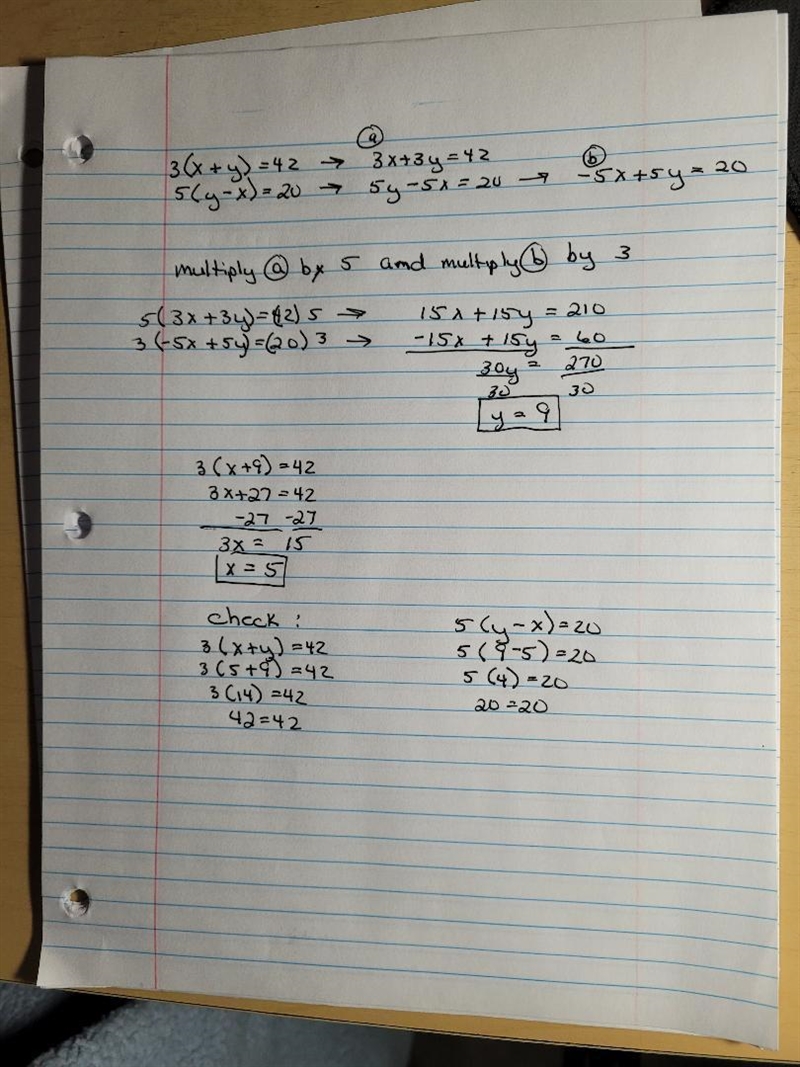 ⓐ
3(x+y)=42 → 3x+3y=42
ⓑ
5(y-x)=20 → 5y-5x=20 → -5x+5y=20
multiply ⓐ by 5 and multiply ⓑ by 3
5(3x+3y)=(42)5 → 15x+15y=210
3(-5x+5y)=(20)3 → -15x+15y=60
30y = 270
30 30
y=9
3(x+9)=42
3x+27=42
-27 -27
3x = 15
x=5
check:
3(x+y)=42
3(5+9)=42
3(14)=42
42=42
5(y-x)=20
5(9-5)=20
5(4)=20
20=20